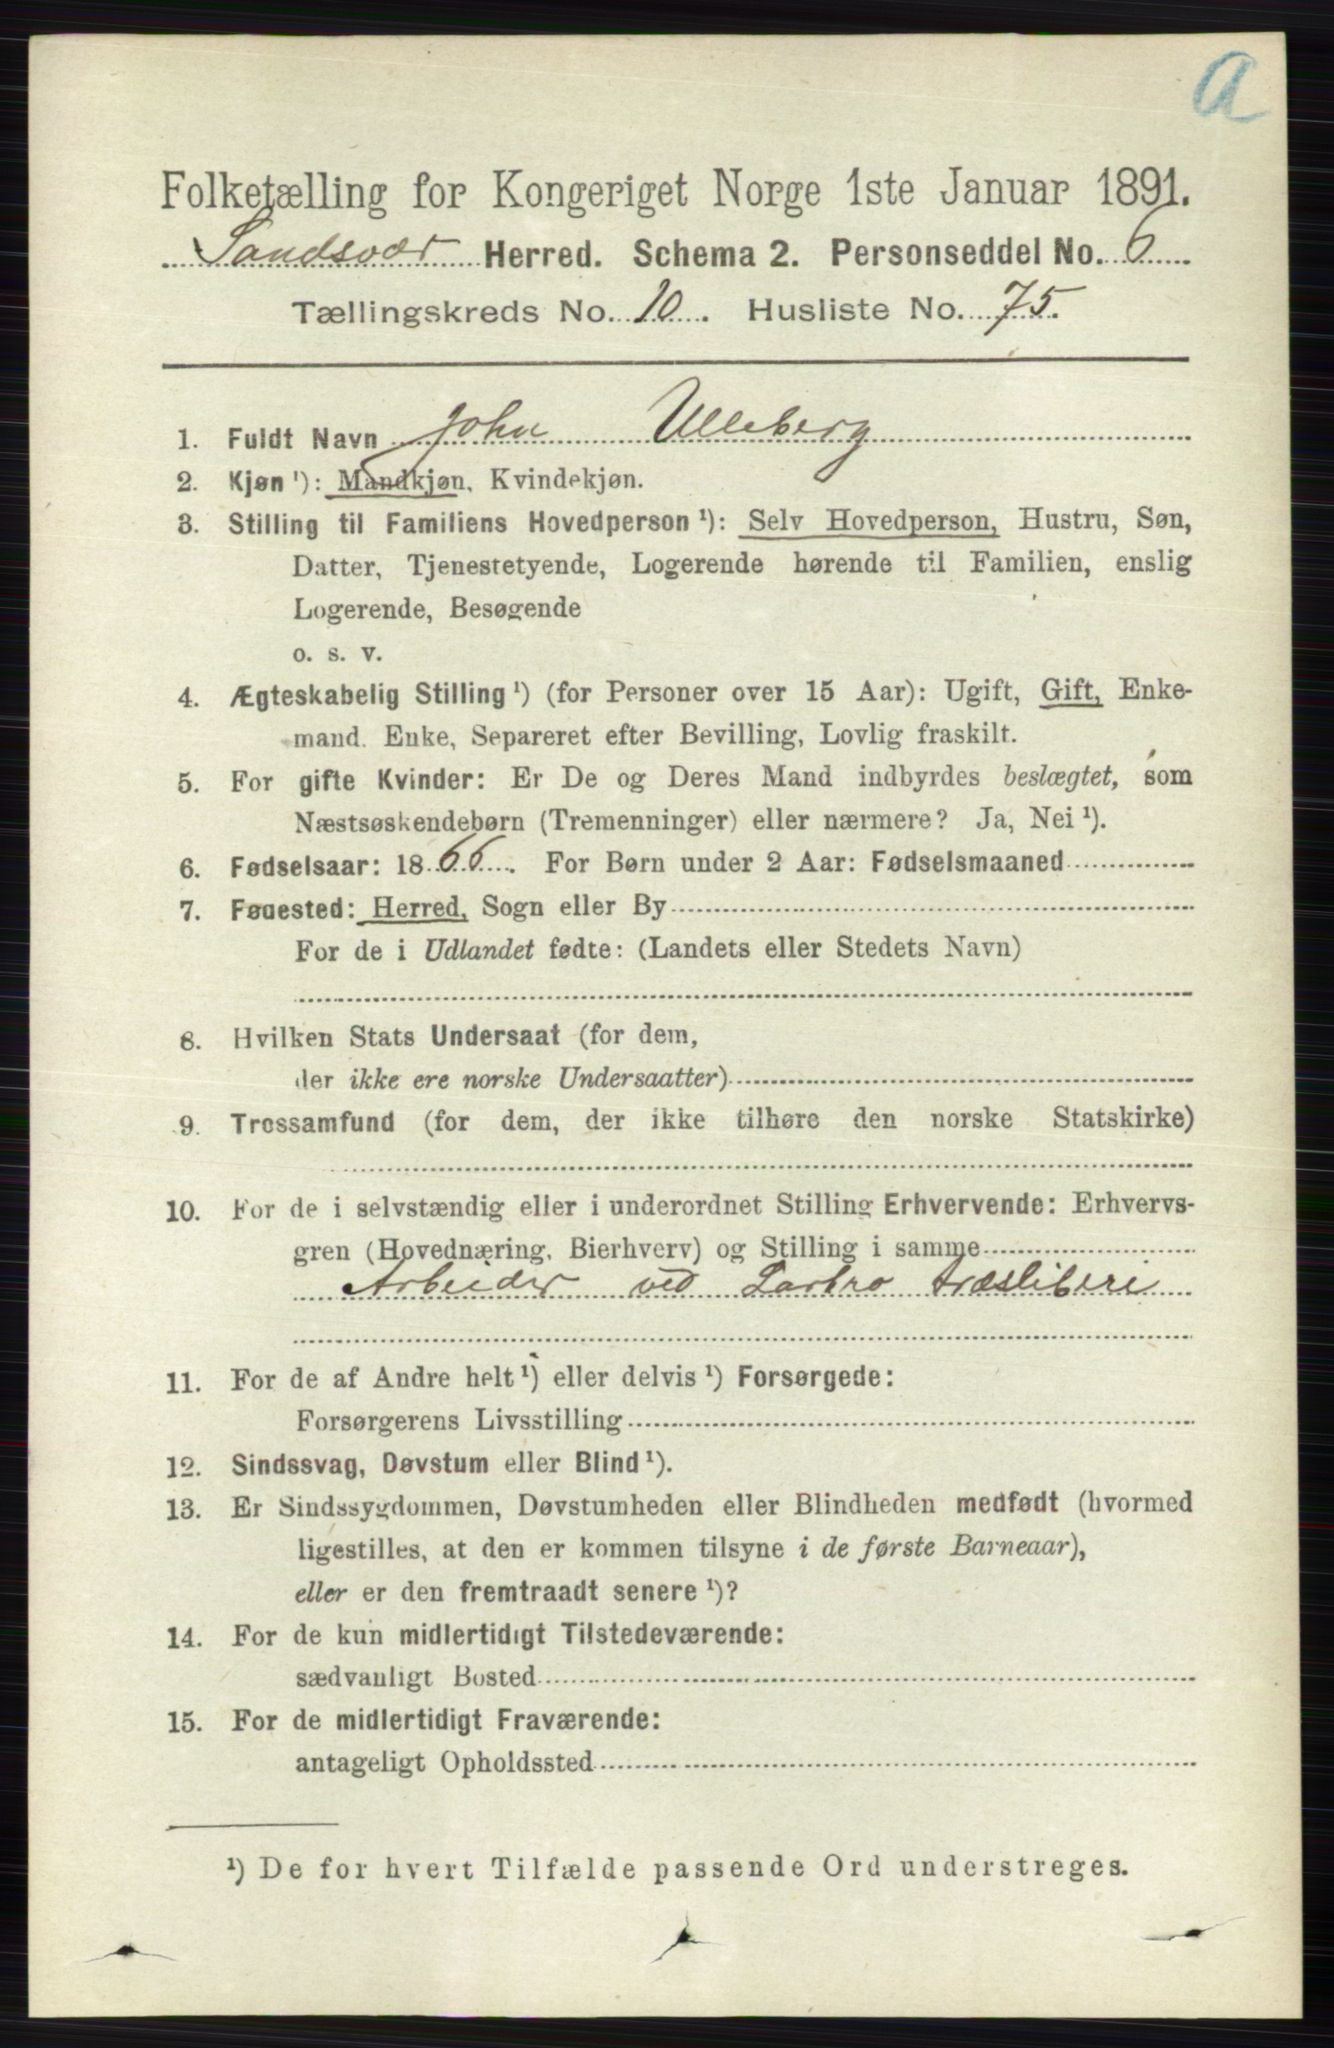 a
Folketælling for Kongeriget Norge 1ste Januar 1891.
Sandsvær Herred. Schema 2. Personseddel No. 6
Tællingskreds No. 10. Husliste No. 75.
1. Fuldt Navn John Ulleberg
2. Kjøn ¹): Mandkjøn, Kvindekjøn.
3. Stilling til Familiens Hovedperson ¹): Selv Hovedperson, Hustru, Søn,
Datter, Tjenestetyende, Logerende hørende til Familien, enslig
Logerende, Besøgende
o. s. v.
4. Ægteskabelig Stilling ¹) (for Personer over 15 Aar): Ugift, Gift, Enke-
mand. Enke, Separeret efter Bevilling, Lovlig fraskilt.
5. For gifte Kvinder: Er De og Deres Mand indbyrdes beslægtet, som
Næstsøskendebørn (Tremenninger) eller nærmere? Ja, Nei ¹).
6. Fødselsaar: 1866. For Børn under 2 Aar: Fødselsmaaned
7. Fødested: Herred, Sogn eller By
For de i Udlandet fødte: (Landets eller Stedets Navn)
8. Hvilken Stats Undersaat (for dem,
der ikke ere norske Undersaatter)
9. Trossamfund (for dem, der ikke tilhøre den norske Statskirke)
10. For de i selvstændig eller i underordnet Stilling Erhvervende: Erhvervs-
gren (Hovednæring, Bierhverv) og Stilling i samme
Arbeider ved Labro træsliberi
11. For de af Andre helt ¹) eller delvis ¹) Forsørgede:
Forsørgerens Livsstilling
12. Sindssvag, Døvstum eller Blind ¹).
13. Er Sindssygdommen, Døvstumheden eller Blindheden medfødt (hvormed
ligestilles, at den er kommen tilsyne i de første Barneaar),
eller er den fremtraadt senere ¹)?
14. For de kun midlertidigt Tilstedeværende:
sædvanligt Bosted
15. For de midlertidigt Fraværende:
antageligt Opholdssted
¹) De for hvert Tilfælde passende Ord understreges.